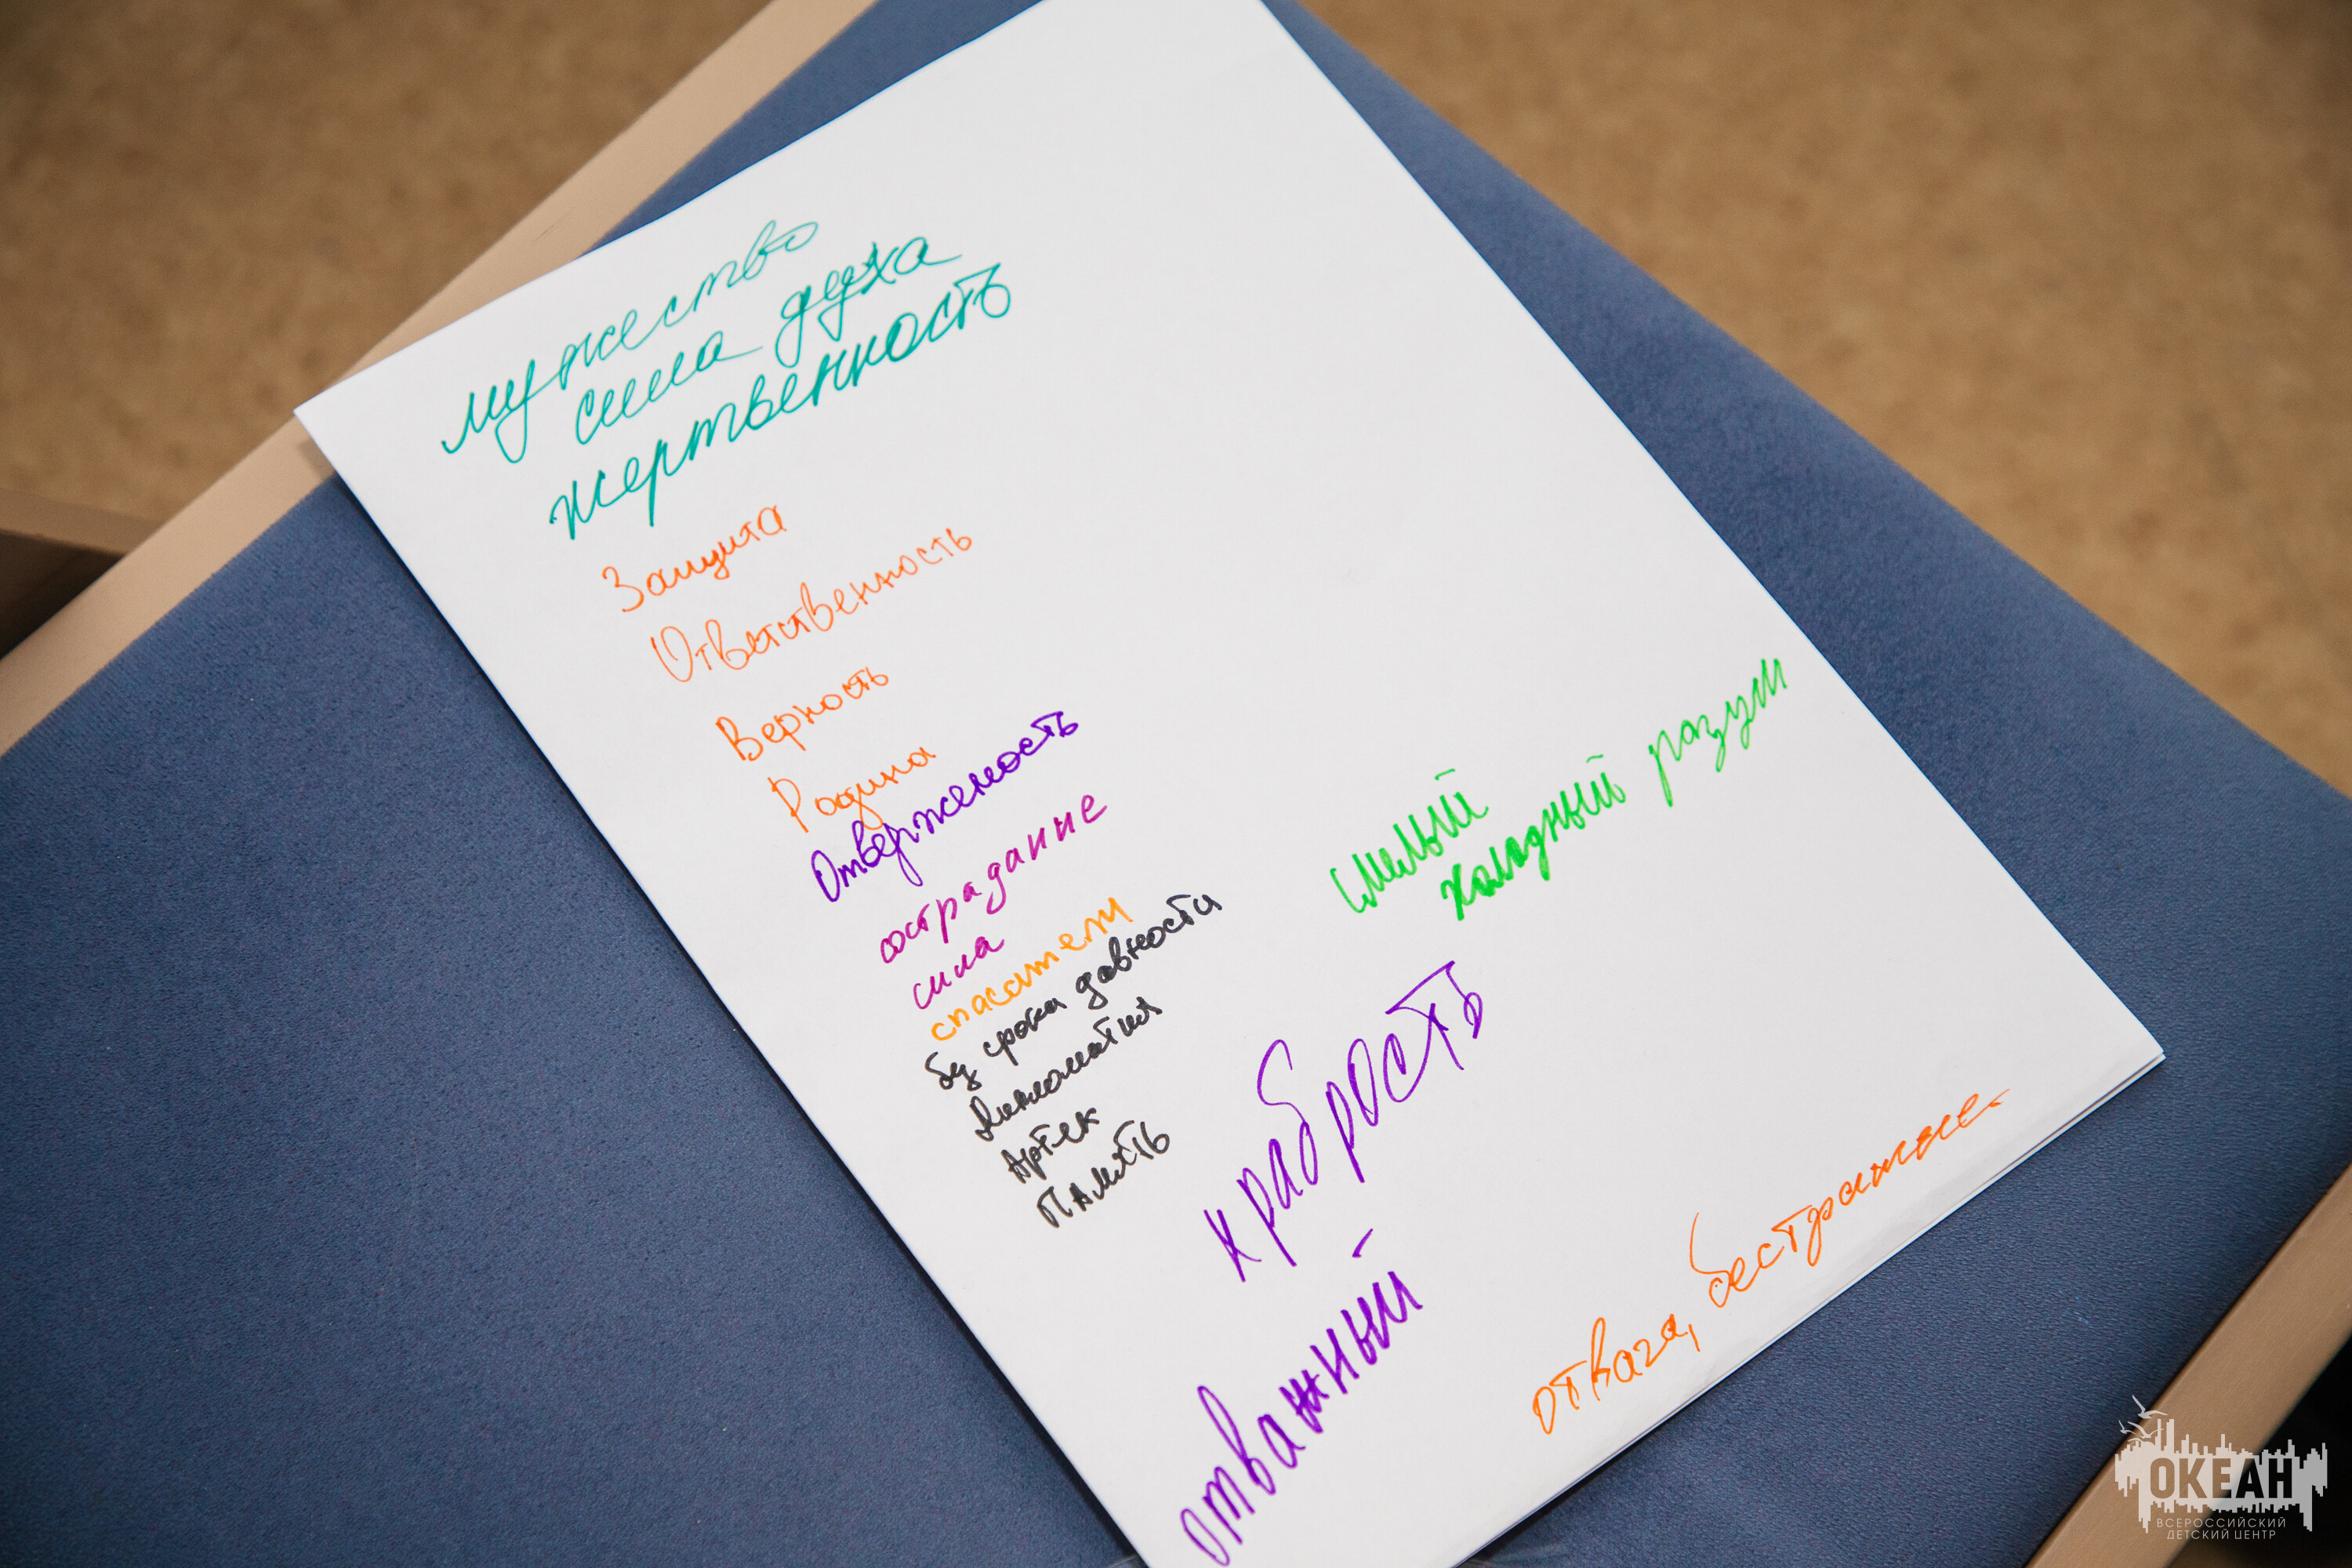 мужество
сила духа
жертвенность
Защита
Ответственность
Верность
Родина
Отверженость
сострадание
сила
спасатели
без срока давности
Дипломатия
Артек
ПАМЯТЬ
смелый
холодный разум
храбрость
отважный
отвага, бестрашие.
ОКЕАН
ВСЕРОССИЙСКИЙ
ДЕТСКИЙ ЦЕНТР